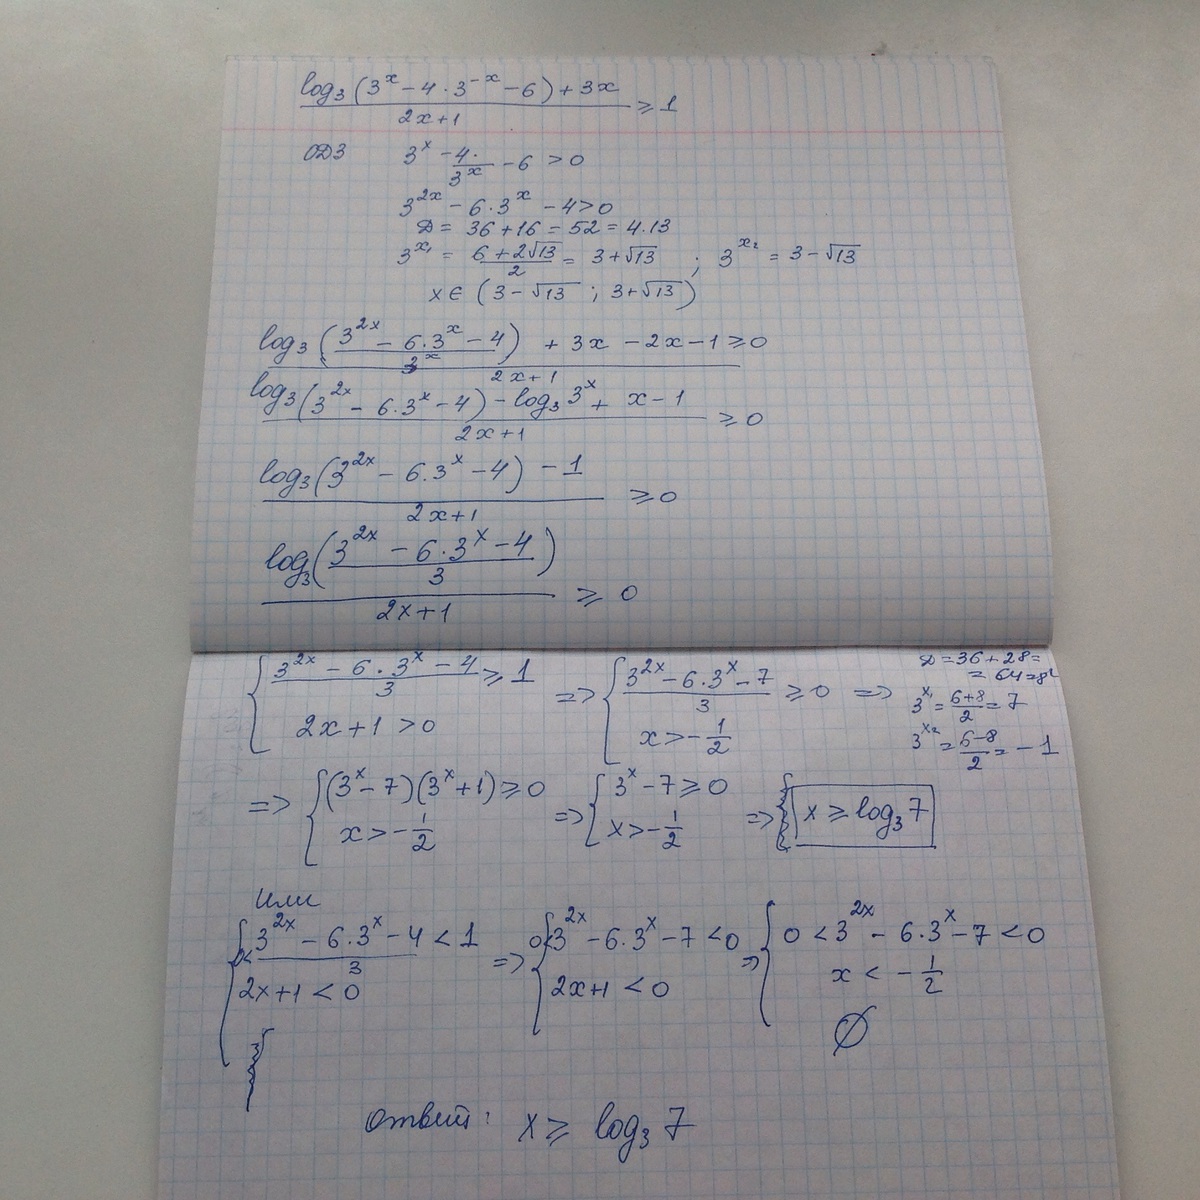 log₃(3ˣ − 4 · 3⁻ˣ − 6) + 3x / 2x+1 ≥ 1
ОДЗ 3ˣ − 4/3ˣ − 6 > 0
3²ˣ − 6·3ˣ − 4 > 0
Д = 36 + 16 = 52 = 4·13
3^x₁ = (6 + 2√13)/2 = 3 + √13 ; 3^x₂ = 3 − √13
x ∈ (3 − √13 ; 3 + √13)
log₃((3²ˣ − 6·3ˣ − 4)/3ˣ) + 3x − 2x − 1 / 2x+1 ≥ 0
log₃(3²ˣ − 6·3ˣ − 4) − log₃3ˣ + x − 1 / 2x+1 ≥ 0
log₃(3²ˣ − 6·3ˣ − 4) − 1 / 2x+1 ≥ 0
log₃((3²ˣ − 6·3ˣ − 4)/3) / 2x+1 ≥ 0
{ (3²ˣ − 6·3ˣ − 4)/3 ≥ 1 => { (3²ˣ − 6·3ˣ − 7)/3 ≥ 0 =>
2x+1 > 0 x > −1/2
Д = 36 + 28 =
= 64 = 8²
3^x₁ = (6+8)/2 = 7
3^x₂ = (6−8)/2 = −1
=> { (3ˣ − 7)(3ˣ + 1) ≥ 0 => { 3ˣ − 7 ≥ 0 => { x ≥ log₃7
x > −1/2 x > −1/2
Или
{ 0 < (3²ˣ − 6·3ˣ − 4)/3 < 1 => { 0 < 3²ˣ − 6·3ˣ − 7 < 0 => { 0 < 3²ˣ − 6·3ˣ − 7 < 0
2x+1 < 0 2x+1 < 0 x < −1/2
∅
Ответ: x ≥ log₃7